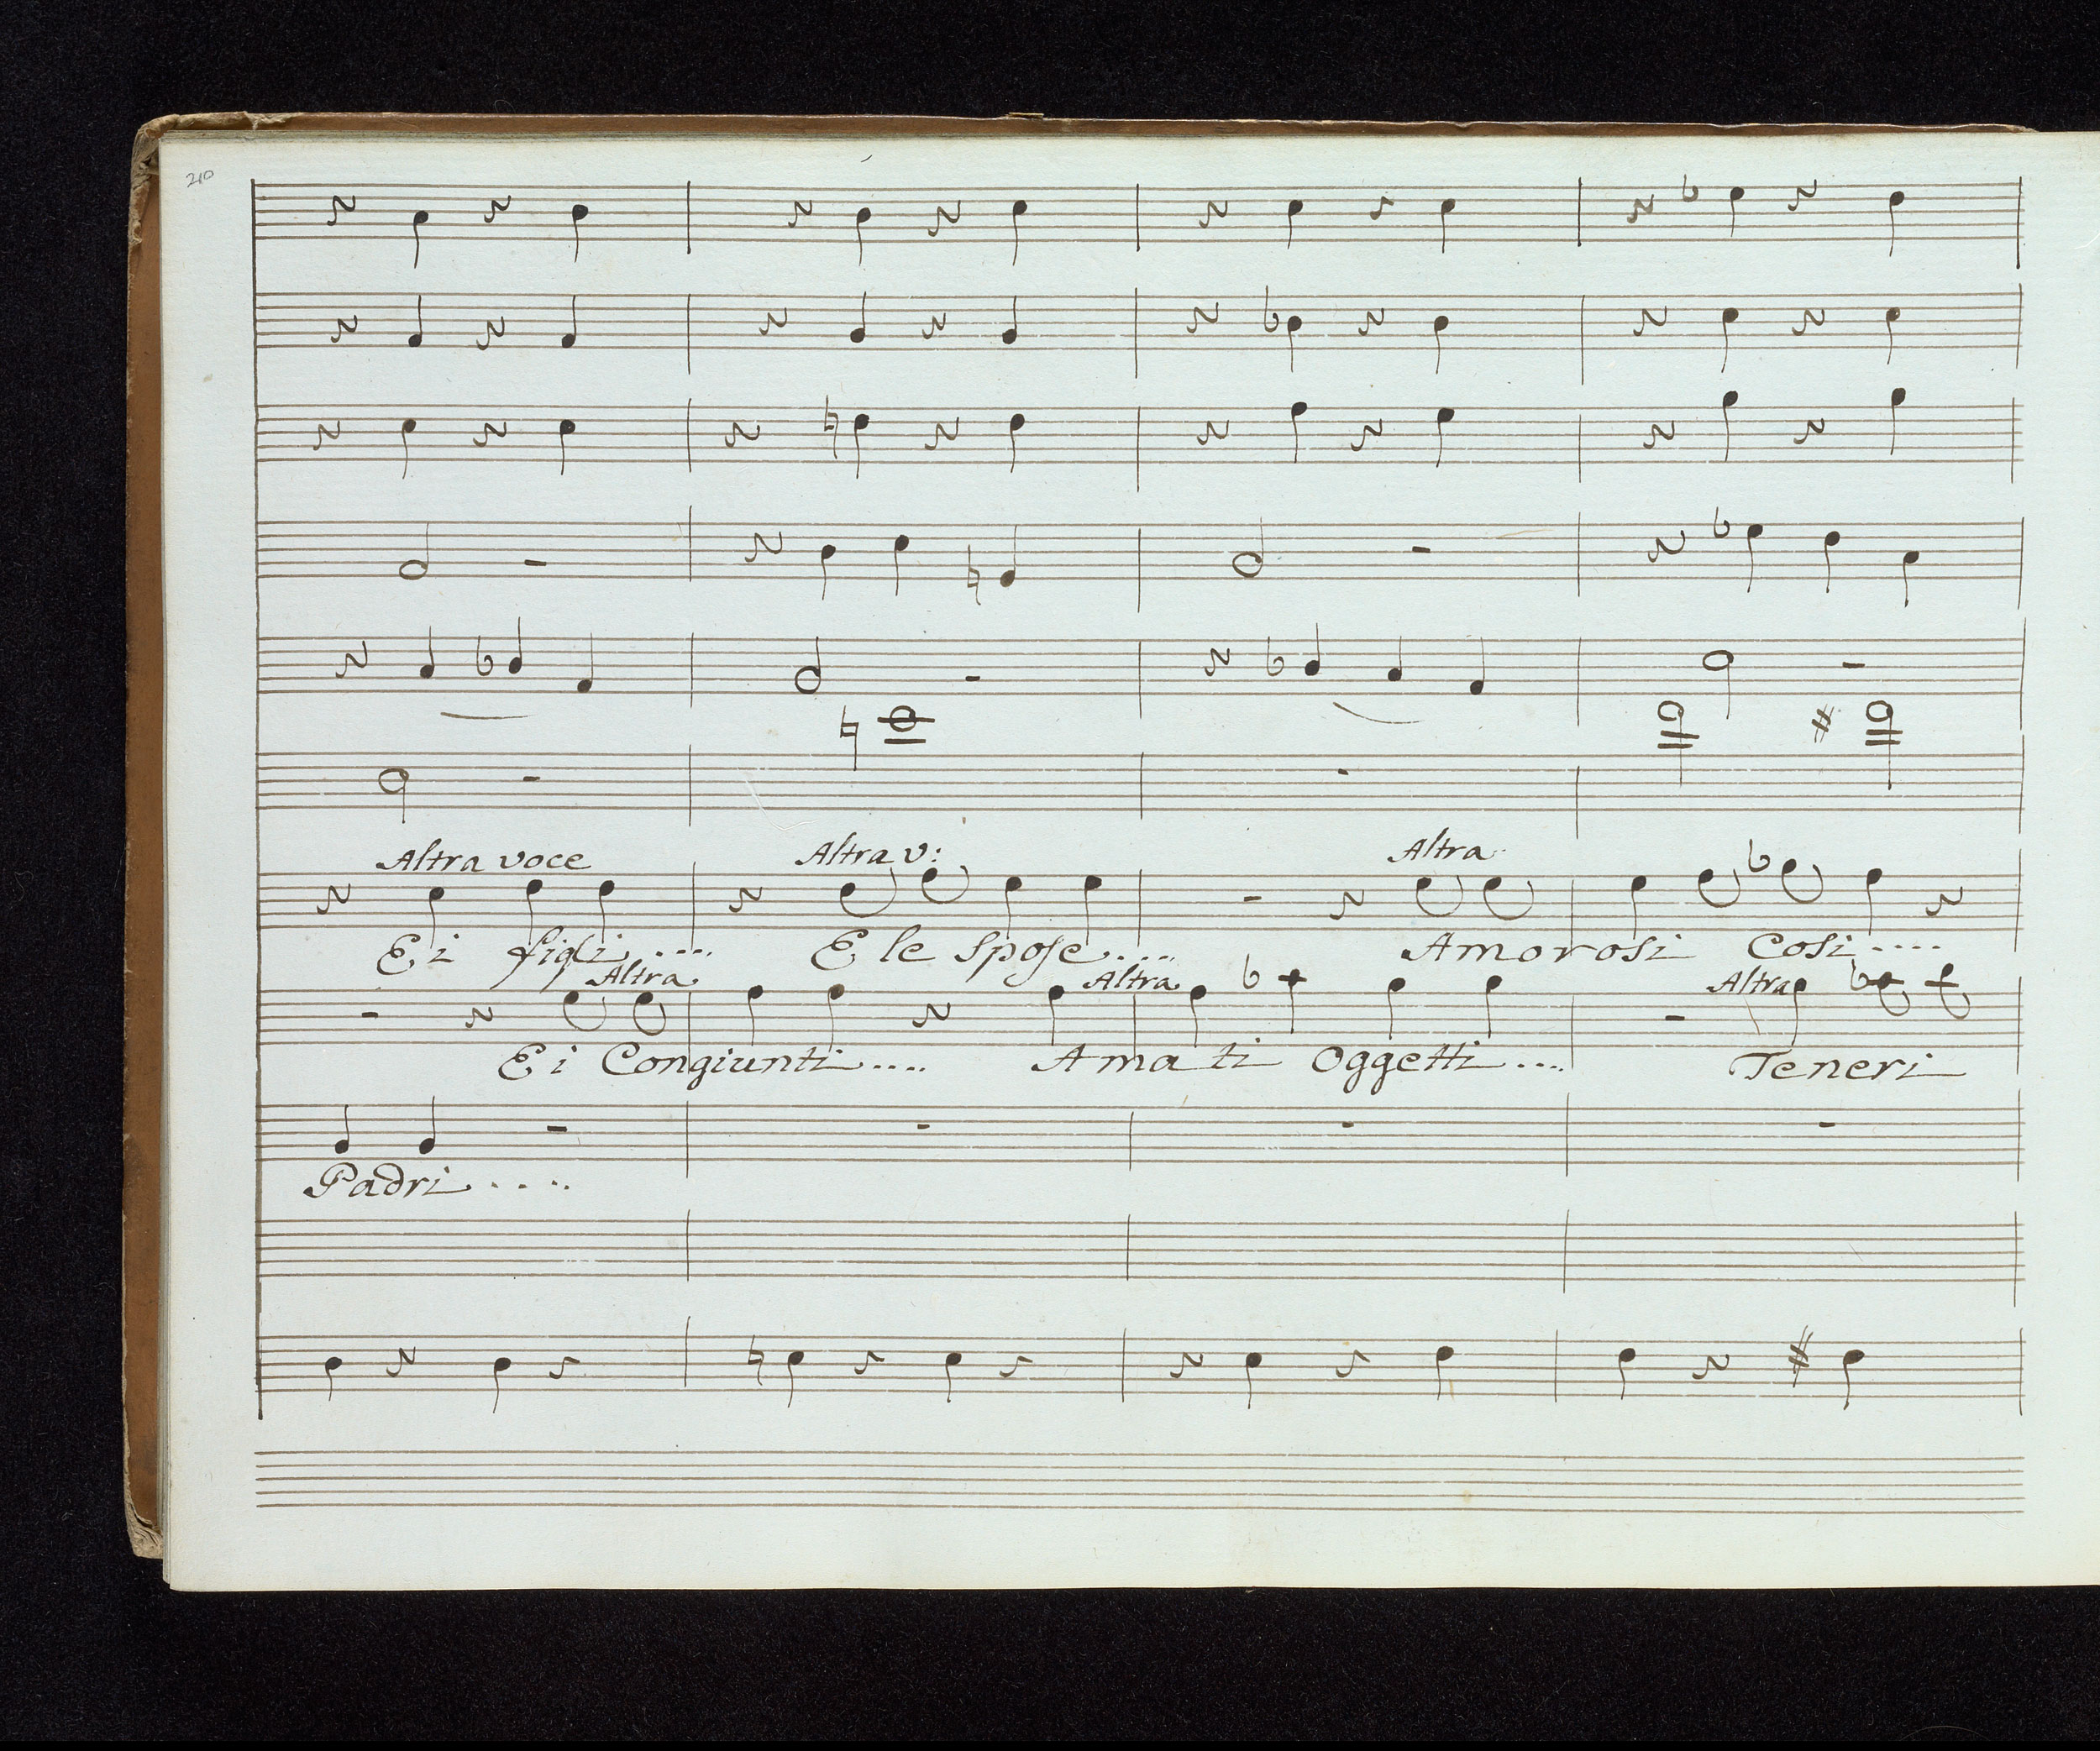 210
Altra voce Altra v: Altra
E i figli..... E le spose..... Amorosi Cosi....
Altra Altra Altra
E i Congiunti.... Amati Oggetti.... Teneri
Padri.....